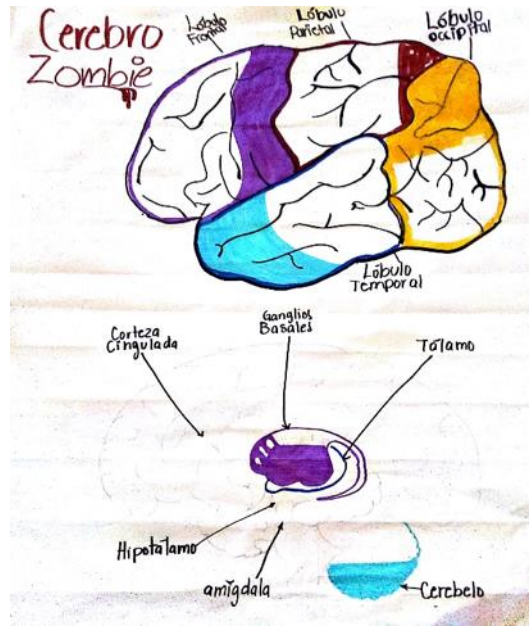 Cerebro
Zombie
Lóbulo
Frontal
Lóbulo
Parietal
Lóbulo
Occipital
Lóbulo
Temporal
Corteza
Cingulada
Ganglios
Basales
Tálamo
Hipotálamo
amígdala
Cerebelo